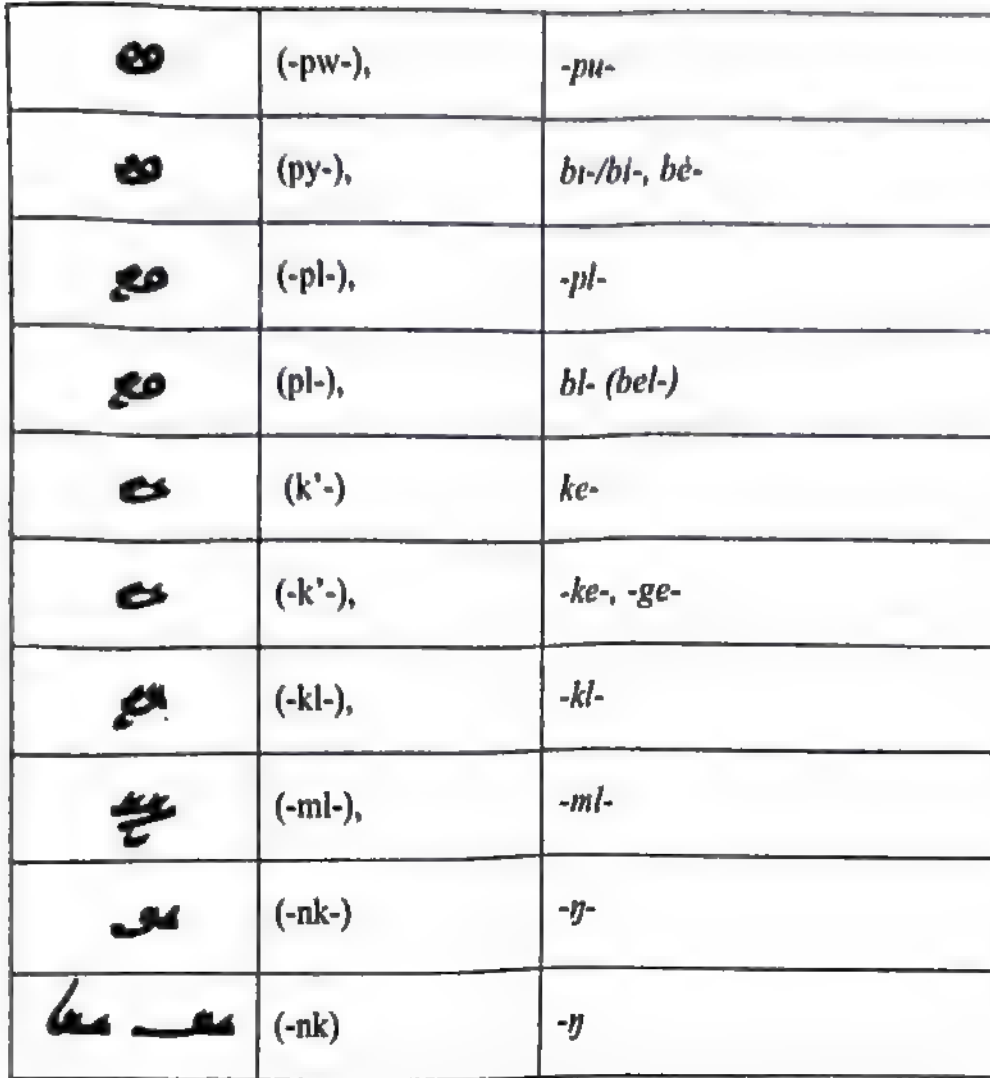 (-pw-), -pu-
(py-), bı-/bi-, bė-
(-pl-), -pl-
(pl-), bl- (bel-)
(k’-) ke-
(-k’-), -ke-, -ge-
(-kl-), -kl-
(-ml-), -ml-
(-nk-) -ŋ-
(-nk) -ŋ